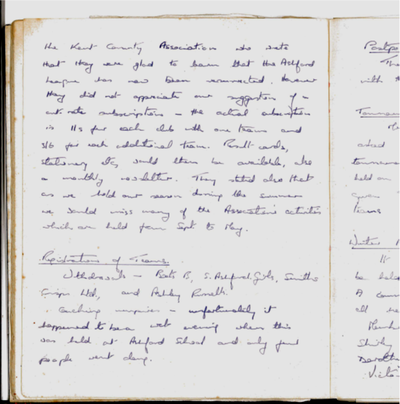 the Kent County Association who wrote
that they were glad to learn that the Ashford
League has now been resurrected. However
they did not appreciate our suggestion of
cut rate subscriptions – the actual subscription
is 11s for each club with one team and
3/6 for each additional team. Result cards,
stationery etc, would then be available, also
a monthly newsletter. They stated also that
as we held our season during the summer
we would miss many of the Association's activities
which are held from Sept to May.
Registrations of Teams
Withdrawals – B, S. Ashford Girls, Smiths
Ltd, and Ashley Russell.
Coaching – unfortunately it
happened to be a wet evening when this
was held at Ashford School and only four
people went along.
Postpo
Th
with t
held on
teams
Winter
11
be hel
A com
all
Shirley
Dorothe
Victo